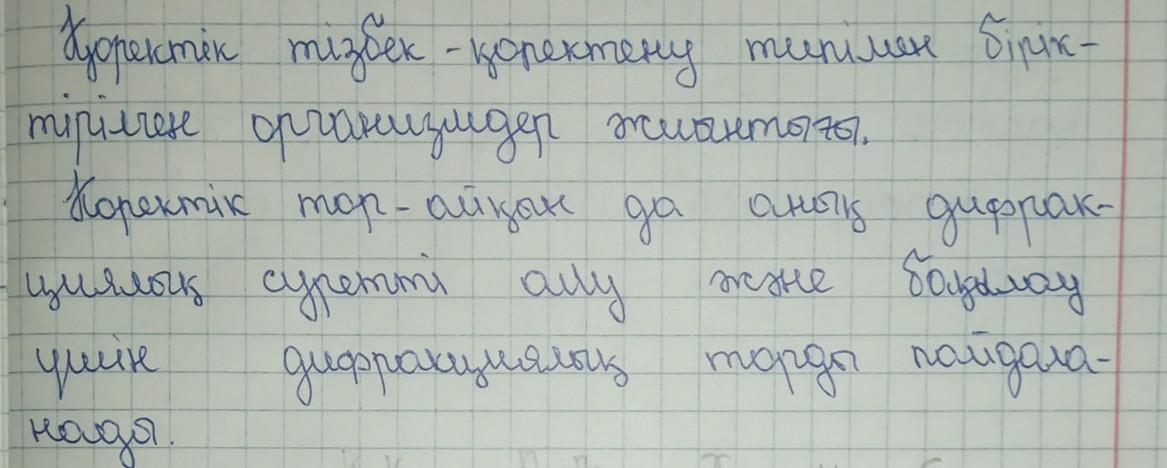 Қоректік тізбек - қоректену типімен бірік-
тірілген организмдер жиынтығы.
Коректік тор - айқын да анық дифрак-
циялық суретті алу және бақылау
үшін дифракциялық торды пайдала-
нады.